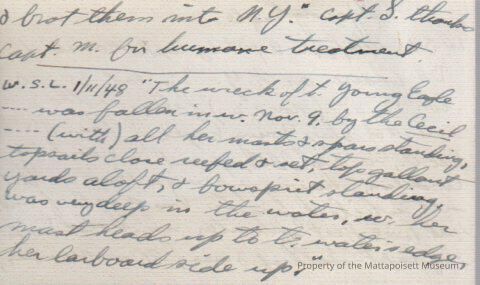 & brot them into N.Y." Capt. S. thanks
Capt. M. for humane treatment.
W.S.L. 1/11/48 "The wreck of t. Young Eagle
---- was fallen in w. Nov. 9. by the Cecil
---- (with) all her masts & spars standing,
topsails close reefed & set, top gallant
yards aloft, & bowsprit standing,
was very deep in the water, w. her
mast heads up to t. water's edge,
her larboard side up."
Property of the Mattapoisett Museum